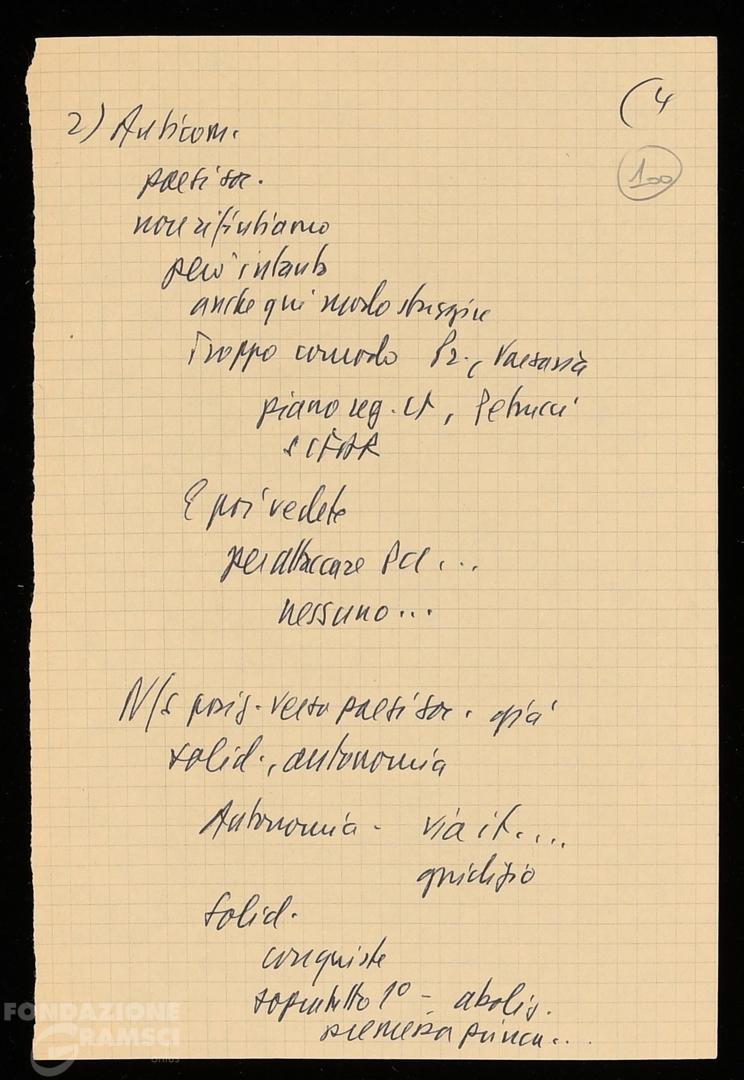 (4
100
2) Anticom.
paesi soc.
non rifiutiamo
però intanto
anche qui modo sfuggire
Troppo comodo Pr.,
piano reg. it, Petrucci
SIFAR
E poi vedete
per attaccare Pci...
nessuno...
N/s posiz. verso paesi soc. già
solid., autonomia
Autonomia - via it....
giudizio
Solid.
conquiste
sopratutto 1° - aboliz.
premessa princ...
FONDAZIONE
GRAMSCI
onlus